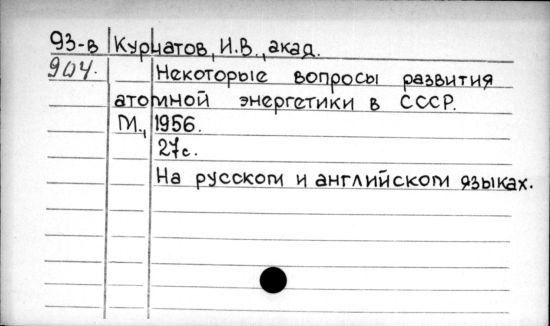 93-в Курчатов, И.В., акад.
904. Некоторые вопросы развития
атомной энергетики в СССР.
М., 1956.
27с.
На русском и английском языках.